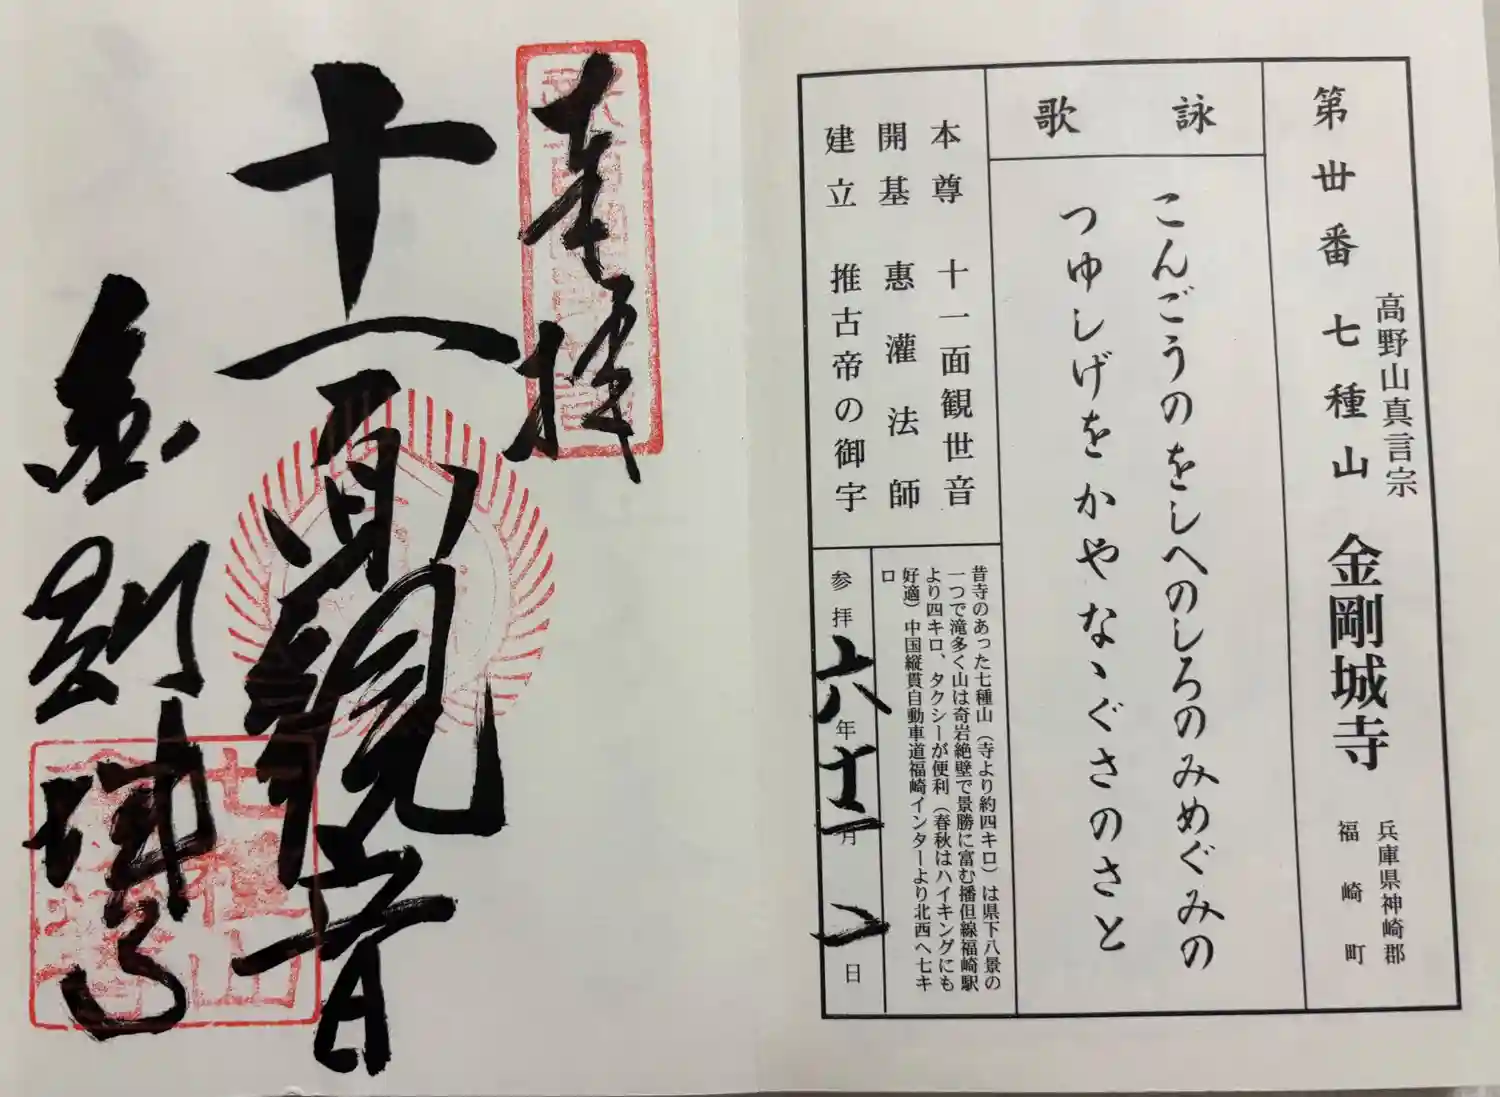 第丗番 七種山 金剛城寺
高野山真言宗
兵庫県神崎郡
福崎町
詠歌
こんごうのをしへのしろのみめぐみの
つゆしげをかやなヽぐさのさと
本尊 十一面観世音
開基 惠灌法師
建立 推古帝の御宇
昔寺のあった七種山（寺より約四キロ）は県下八景の
一つで滝多く山は奇岩絶壁で景勝に富む播但線福崎駅
より四キロ、タクシーが便利（春秋はハイキングにも
好適）中国縦貫自動車道福崎インターより北西へ七キ
ロ
参拝 六年十一月二日
奉拝
十一面観音
金剛城寺
七種山